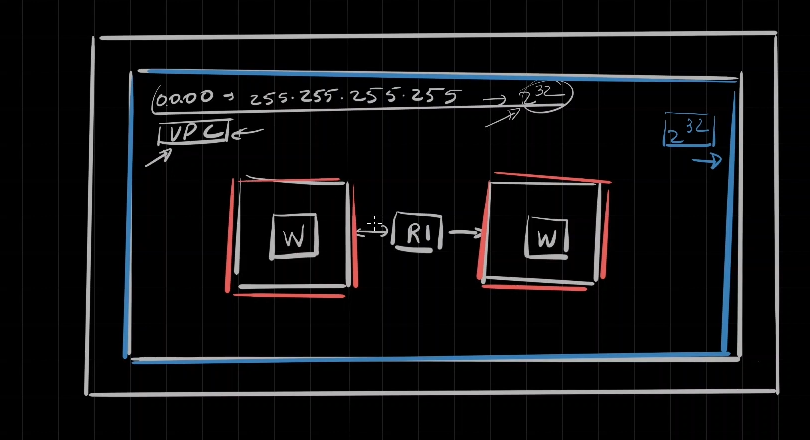 00.00 → 255.255.255.255 → 2^32
VPC
2^32
W
R1
W